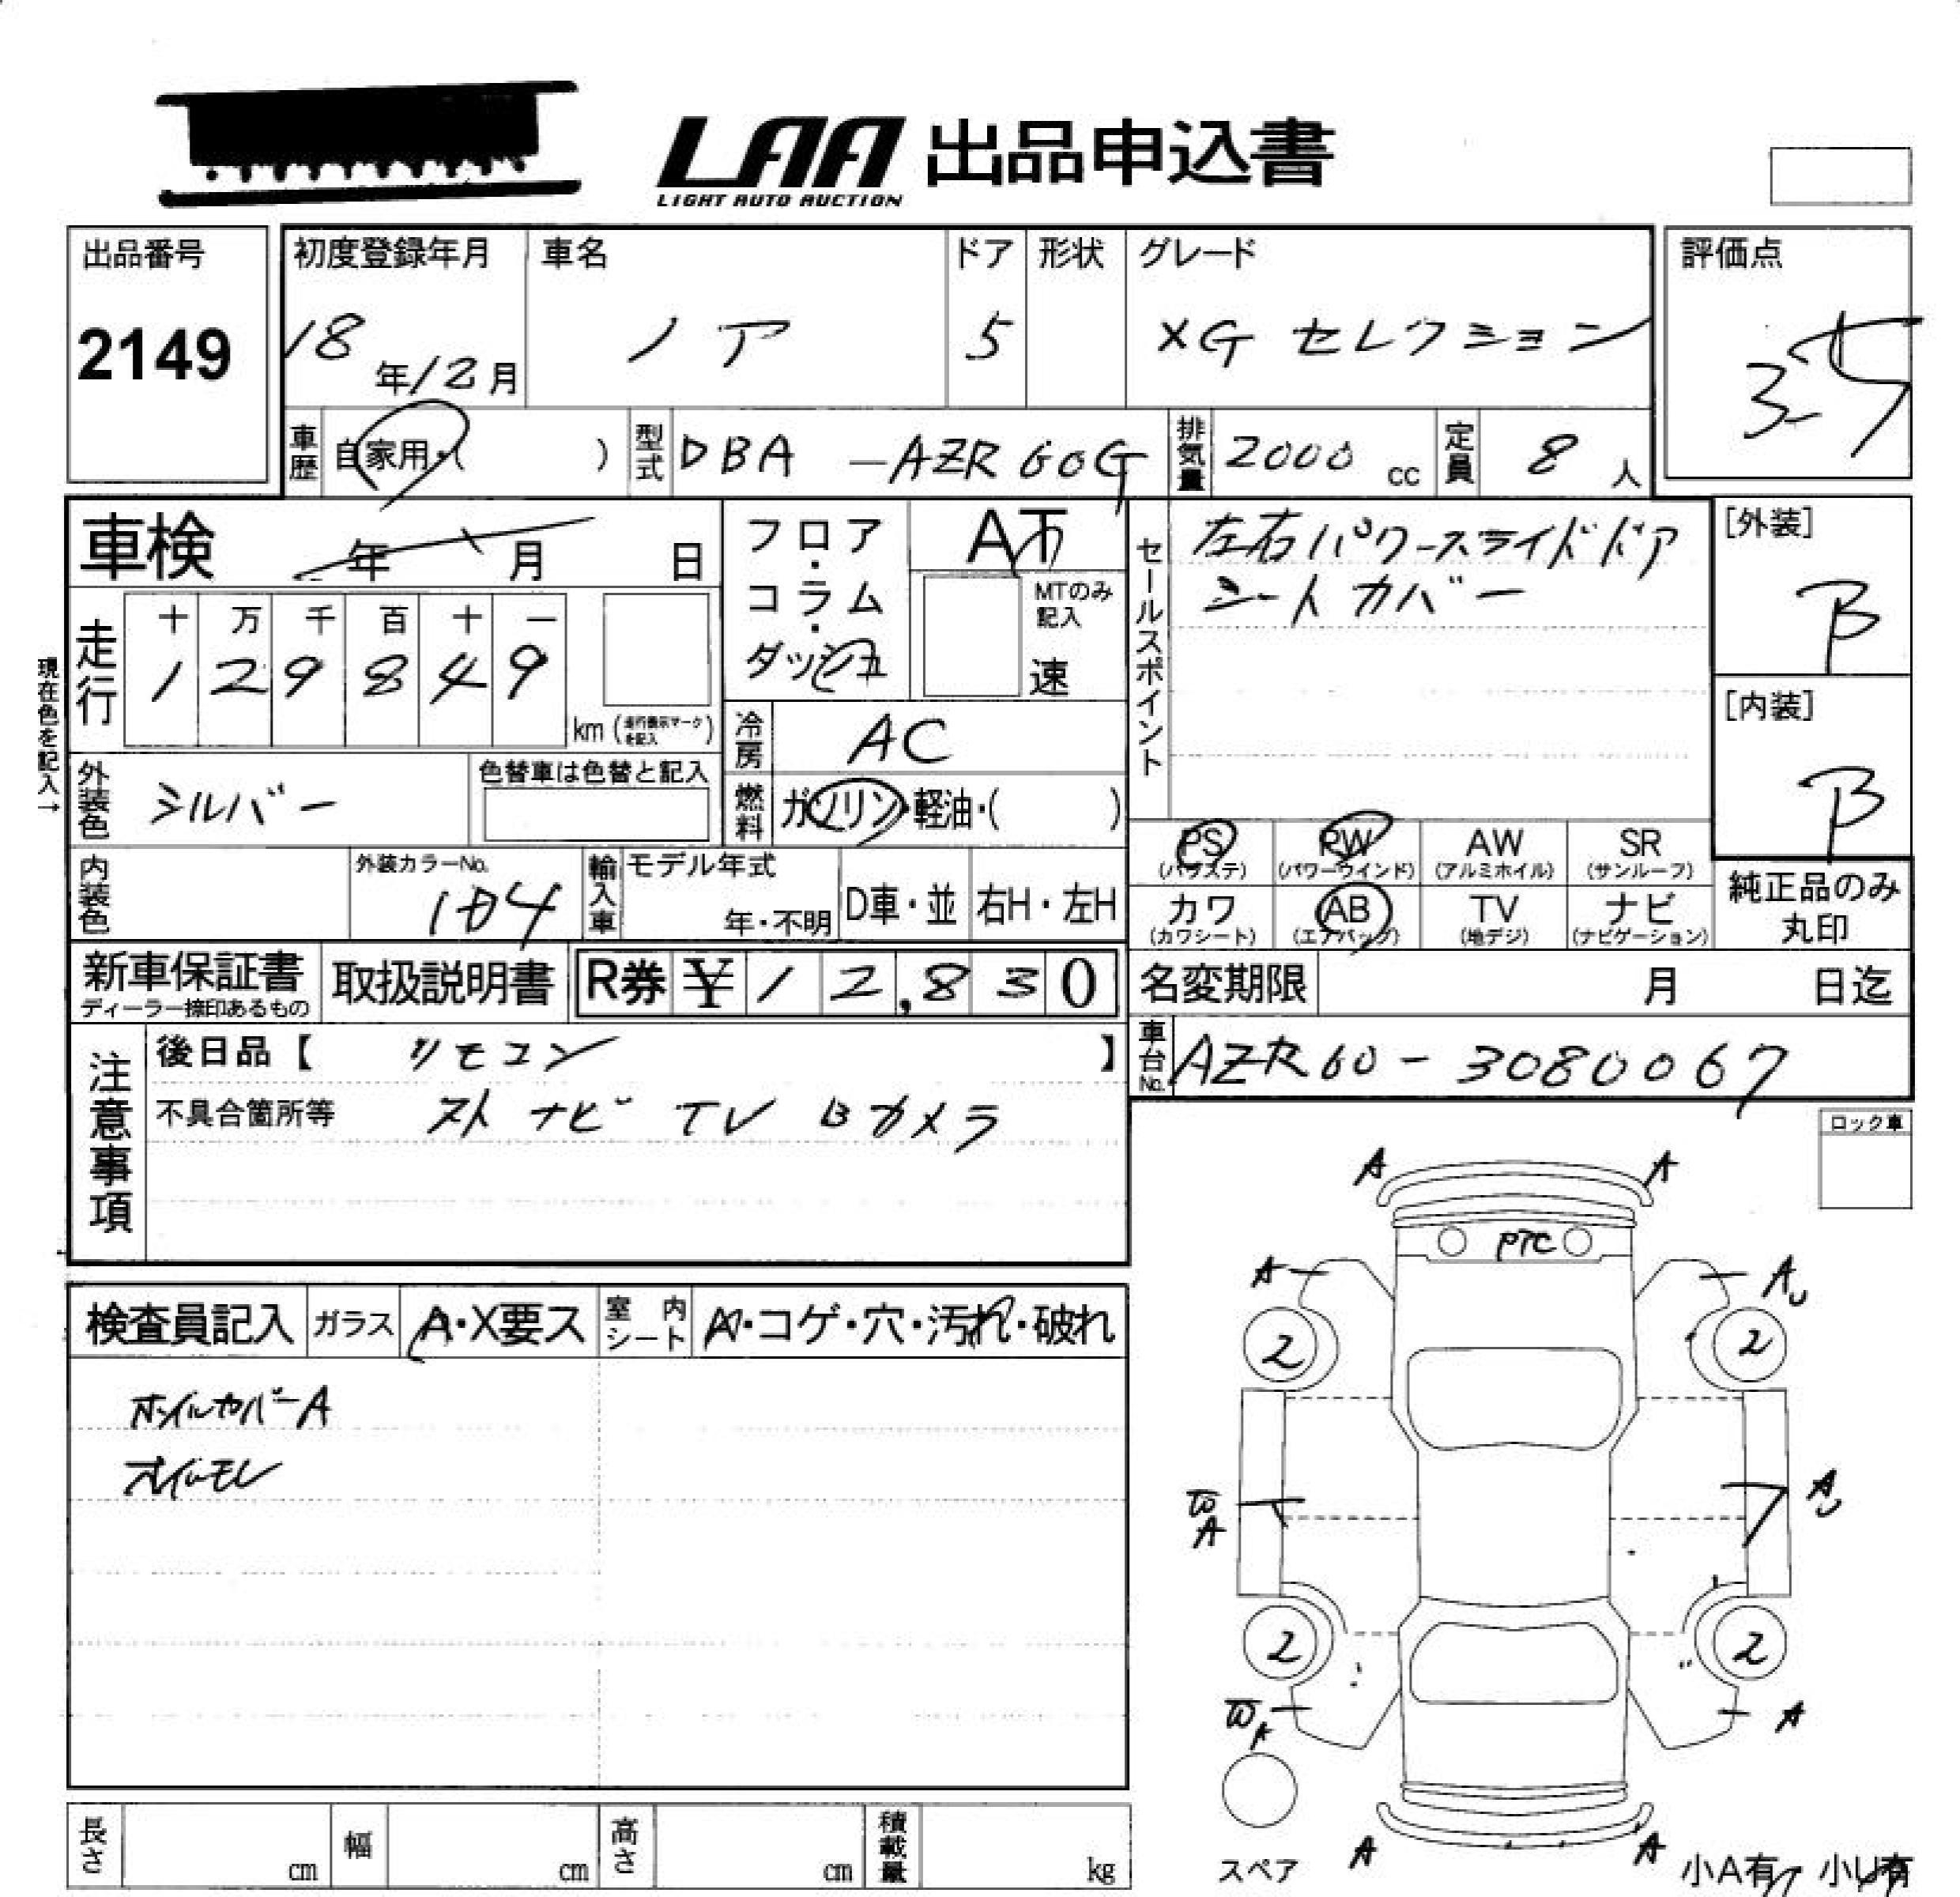 LAA 出品申込書
LIGHT AUTO AUCTION
出品番号
2149
初度登録年月
18年12月
車名
ノア
ドア
5
形状
グレード
XG セレクション
評価点
3.5
車歴
自家用・( )
型式
DBA-AZR60G
排気量
2000 cc
定員
8人
車検 年 月 日
フロア・コラム・ダッシュ
AT
MTのみ記入
速
セールスポイント
左右パワースライドドア
シートカバー
[外装]
B
[内装]
B
現在色を記入→
走行
十 万 千 百 十 一
1 2 9 8 4 9
km (走行表示マークを記入)
冷房
AC
外装色
シルバー
色替車は色替と記入
燃料
ガソリン・軽油・( )
PS
(パワステ)
PW
(パワーウインド)
AW
(アルミホイル)
SR
(サンルーフ)
カワ
(カワシート)
AB
(エアバッグ)
TV
(地デジ)
ナビ
(ナビゲーション)
純正品のみ
丸印
内装色
外装カラーNo.
輸入車
モデル年式
年・不明
D車・並
右H・左H
新車保証書
ディーラー捺印あるもの
取扱説明書
R券 ¥12,830
名変期限 月 日迄
車台No.
AZR60-3080067
注意事項
後日品【 リモコン 】
不具合箇所等 ナビ TV Bカメラ
ロック車
A A
PTC
A A
2 2
A
A
2 2
A A
A A
スペア
小A有 小U有
検査員記入
ガラス
A・X要ス
室内シート
A・コゲ・穴・汚れ・破れ
ホイルカバーA
オイルモレ
長さ cm
幅 cm
高さ cm
積載量 kg